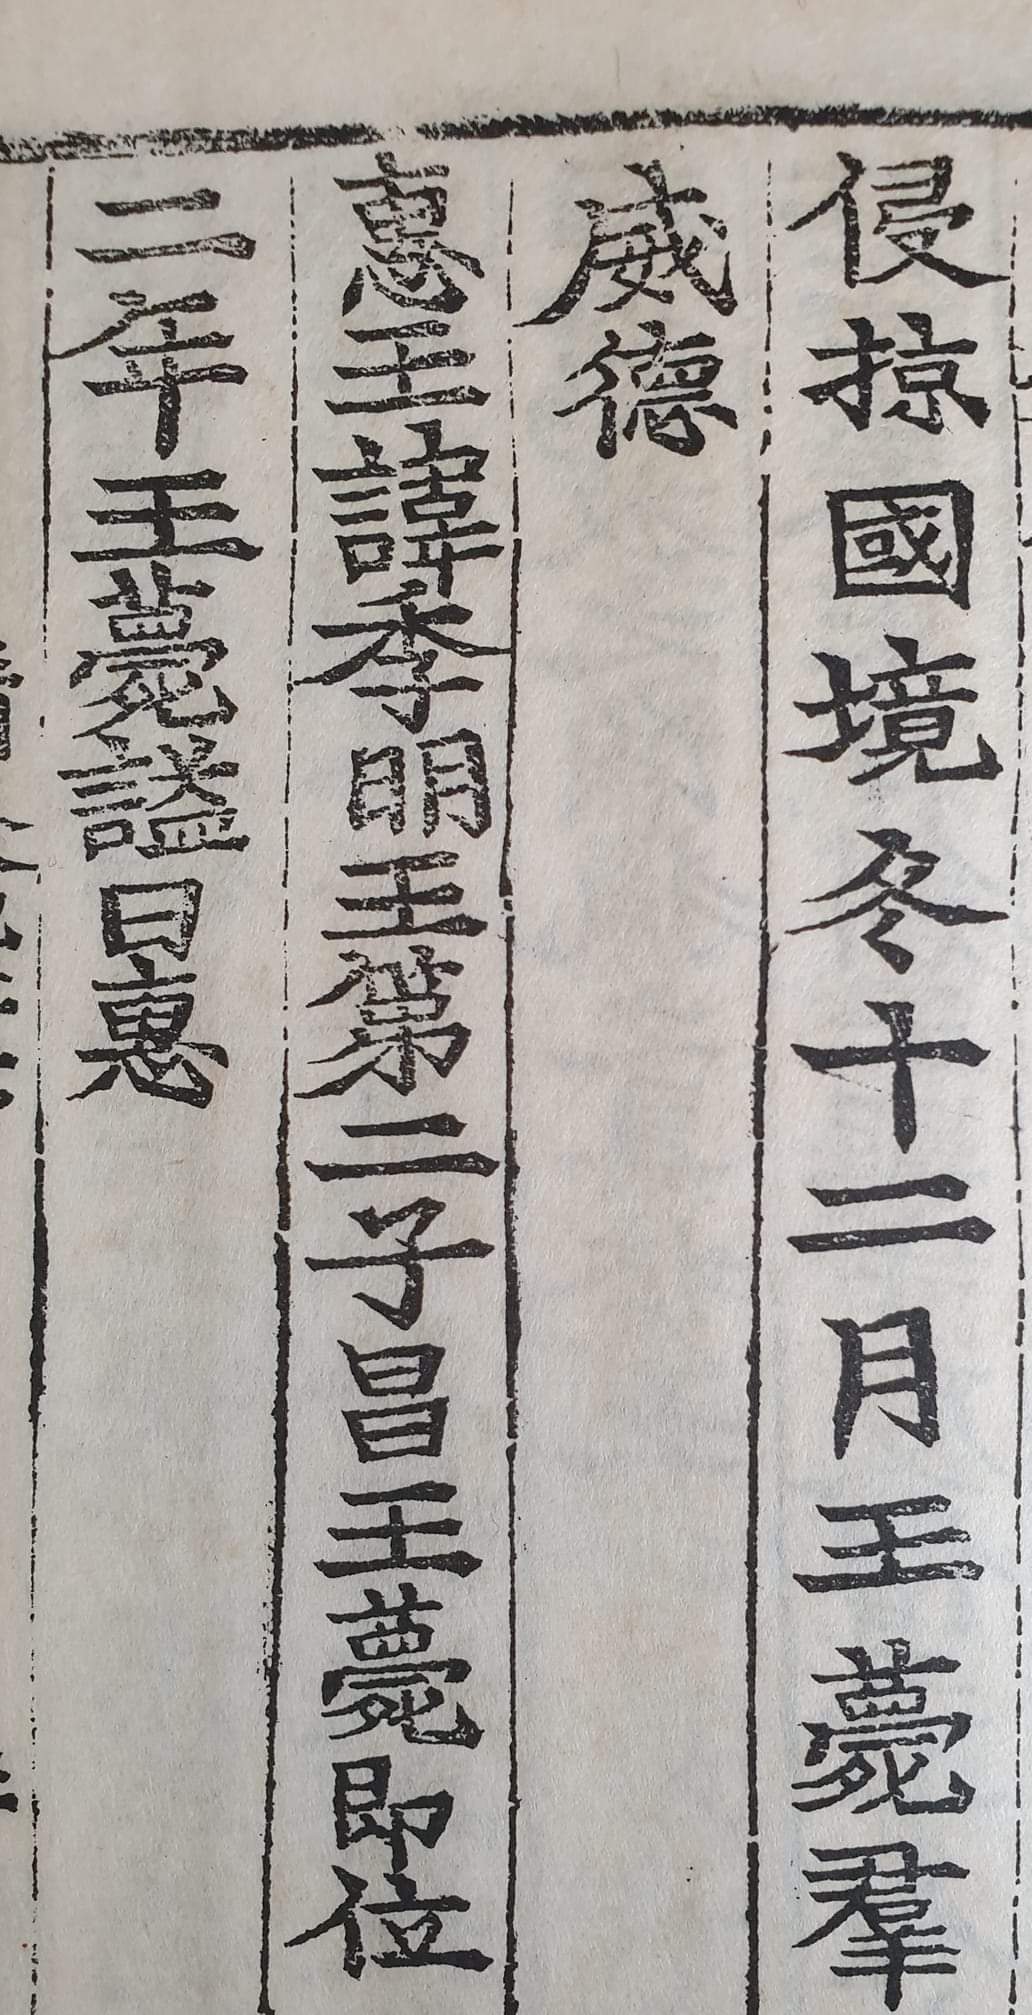 侵掠國境冬十二月王薨羣
威德
惠王諱季明王第二子昌王薨即位
二年王薨諡曰惠